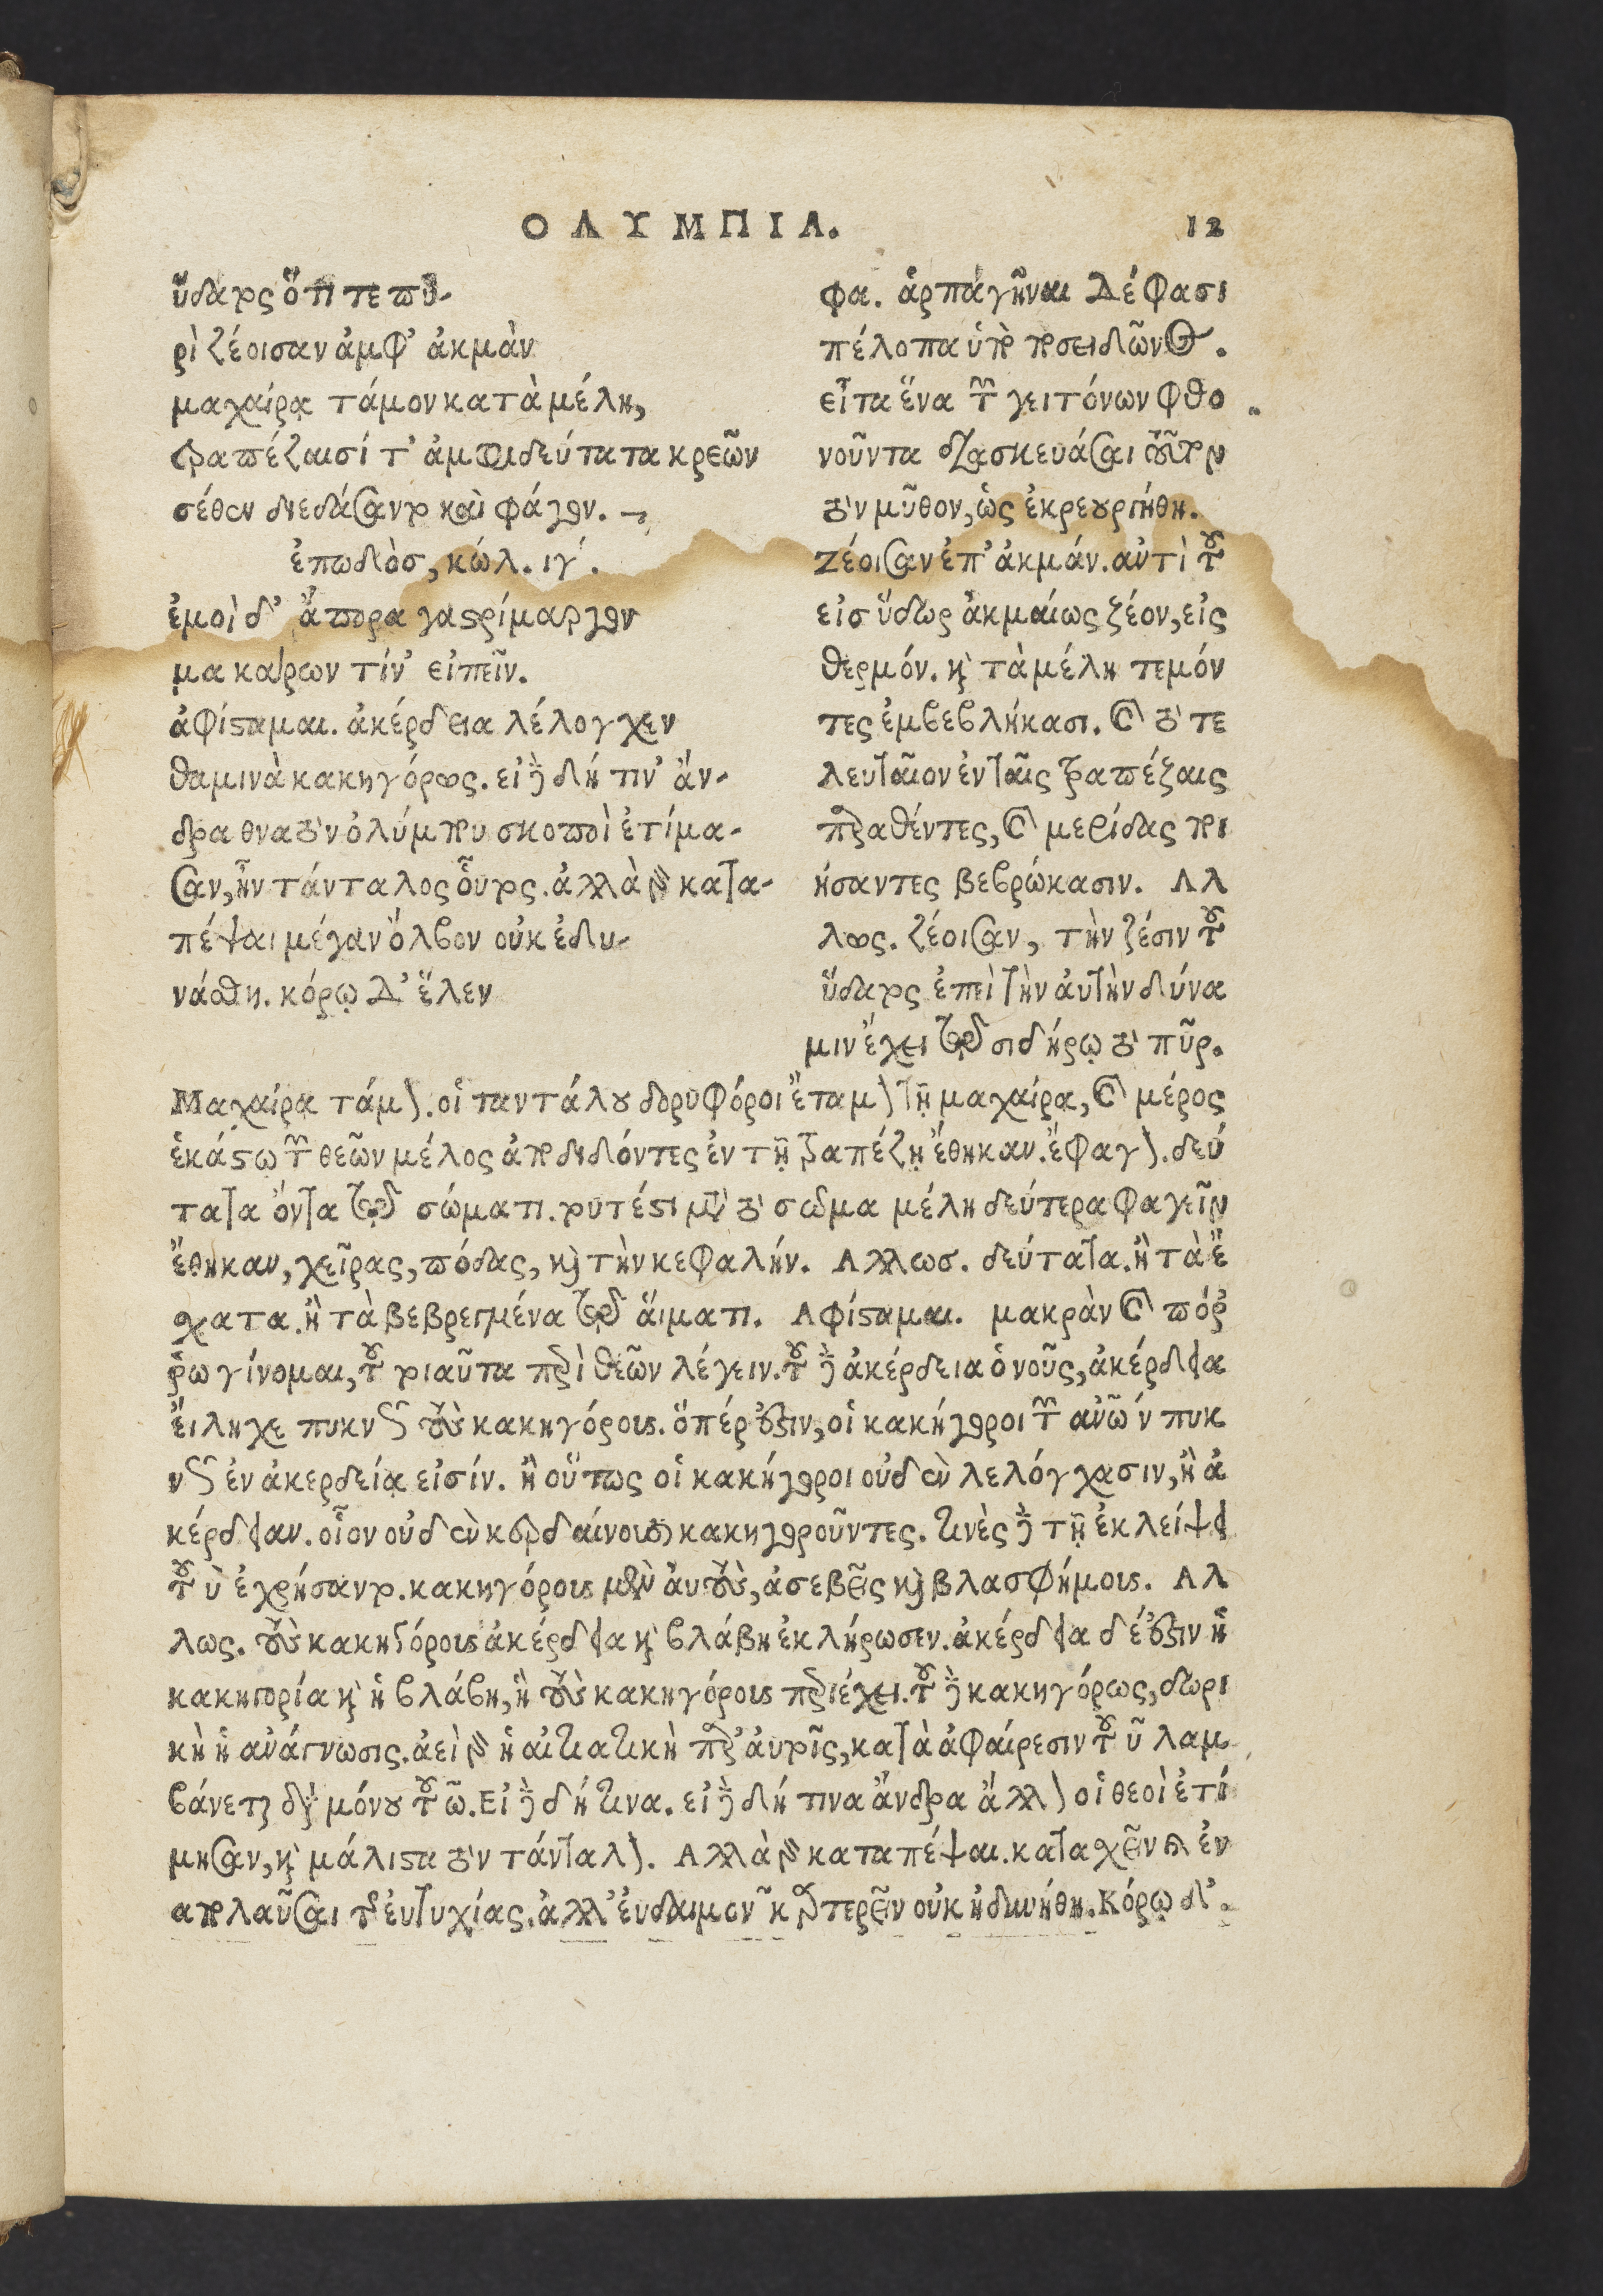 ΟΛΥΜΠΙΑ.
12
ὕδατος ὅτι τε πυ-
ρὶ ζέοισαν ἀμφ' ἀκμὰν
μαχαίρᾳ τάμον κατὰ μέλη,
τραπέζαισί τ' ἀμφιδεύτατα κρεῶν
σέθεν διεδάσαντο καὶ φάγον.
ἐπωδὸσ, κώλ. ιγ'.
ἐμοὶ δ' ἄπορα γαστρίμαργον
μακάρων τίν' εἰπεῖν.
ἀφίσταμαι. ἀκέρδεια λέλογχεν
θαμινὰ κακηγόρως. εἰ δὲ δή τιν' ἄν-
δρα θνατὸν ὀλύμπου σκοποὶ ἐτίμα-
σαν, ἦν τάνταλος οὗτος. ἀλλὰ γὰρ κατα-
πέψαι μέγαν ὄλβον οὐκ ἐδυ-
νάσθη. κόρῳ δ' ἕλεν
φα. ἁρπαγῆναι δέ φασι
πέλοπα ὑπὸ ποσειδῶνος.
εἶτα ἕνα τῶν γειτόνων φθο
νοῦντα διασκευάσαι τοῦτον
τὸν μῦθον, ὡς ἐκρεουργήθη.
Ζέοισαν ἐπ' ἀκμάν. αὐτὶ τοῦ
εἰσ ὕδωρ ἀκμαίως ζέον, εἰς
θερμόν. καὶ τὰ μέλη τεμόν
τες ἐμβεβλήκασι. καὶ τὸ τε
λευταῖον ἐν ταῖς τραπέζαις
παραθέντες, καὶ μερίδας ποι
ήσαντες βεβρώκασιν. Αλ
λως. ζέοισαν, τὴν ζέσιν τοῦ
ὕδατος ἐπὶ τὴν ἀυτὴν δύνα
μιν ἔχει τῷ σιδήρῳ τὸ πῦρ.
Μαχαίρᾳ τάμον. οἱ ταντάλου δορυφόροι ἔταμον τῇ μαχαίρᾳ, καὶ μέρος
ἑκάστῳ τῶν θεῶν μέλος ἀποδιδόντες ἐν τῇ τραπέζῃ ἔθηκαν. ἔφαγον. δεύ
τατα ὄντα τῷ σώματι. τουτέστι μετὰ τὸ σῶμα μέλη δεύτερα φαγεῖν
ἔθηκαν, χεῖρας, πόδας, καὶ τὴν κεφαλήν. Αλλωσ. δεύτατα. ἢ τὰ ἔ
σχατα. ἢ τὰ βεβρεγμένα τῷ ἅιματι. Αφίσταμαι. μακρὰν καὶ πόρ
ῥω γίνομαι, τοῦ τοιαῦτα περὶ θεῶν λέγειν. τοῦ δὲ ἀκέρδεια ὁ νοῦς, ἀκέρδεια
ἔιληχε πυκνῶς τοὺς κακηγόρους. ὅπέρ ἐστιν, οἱ κακήγοροι τῶν ἀνῶν πυκ
νῶς ἐν ἀκερδείᾳ εἰσίν. ἢ οὕτως οἱ κακήγοροι οὐδὲν λελόγχασιν, ἢ ἀ
κέρδειαν. οἷον οὐδὲν κερδαίνουσι κακηγοροῦντες. τινὲς δὲ τῇ ἐκλείψει
τοῦ ὺ ἐχρήσαντο. κακηγόρους μὲν ἀυτοὺς, ἀσεβεῖς καὶ βλασφήμους. Αλ
λως. τοὺς κακηγόρους ἀκέρδεια καὶ βλάβη ἐκλήρωσεν. ἀκέρδεια δέ ἐστιν ἡ
κακηγορία καὶ ἡ βλάβη, ἢ τοὺς κακηγόρους περιέχει. τοῦ δὲ κακηγόρως, δωρι
κὴ ἡ ἀνάγνωσις. ἀεὶ γὰρ ἡ αἰτιατικὴ παρ' ἀυτοῖς, κατὰ ἀφαίρεσιν τοῦ ῦ λαμ
βάνεται διὰ μόνου τοῦ ω. Εἰ δὲ δή τινα. εἰ δὲ δή τινα ἄνδρα ἄλλον οἱ θεοὶ ἐτί
μησαν, καὶ μάλιστα τὸν τάνταλον. Αλλὰ γὰρ καταπέψαι. κατασχεῖν καὶ ἐν
απολαῦσαι τῆς ἐυτυχίας. ἀλλ' ἐυδαιμονῶν καρτερεῖν οὐκ ἠδυνήθη. Κόρῳ δ'.